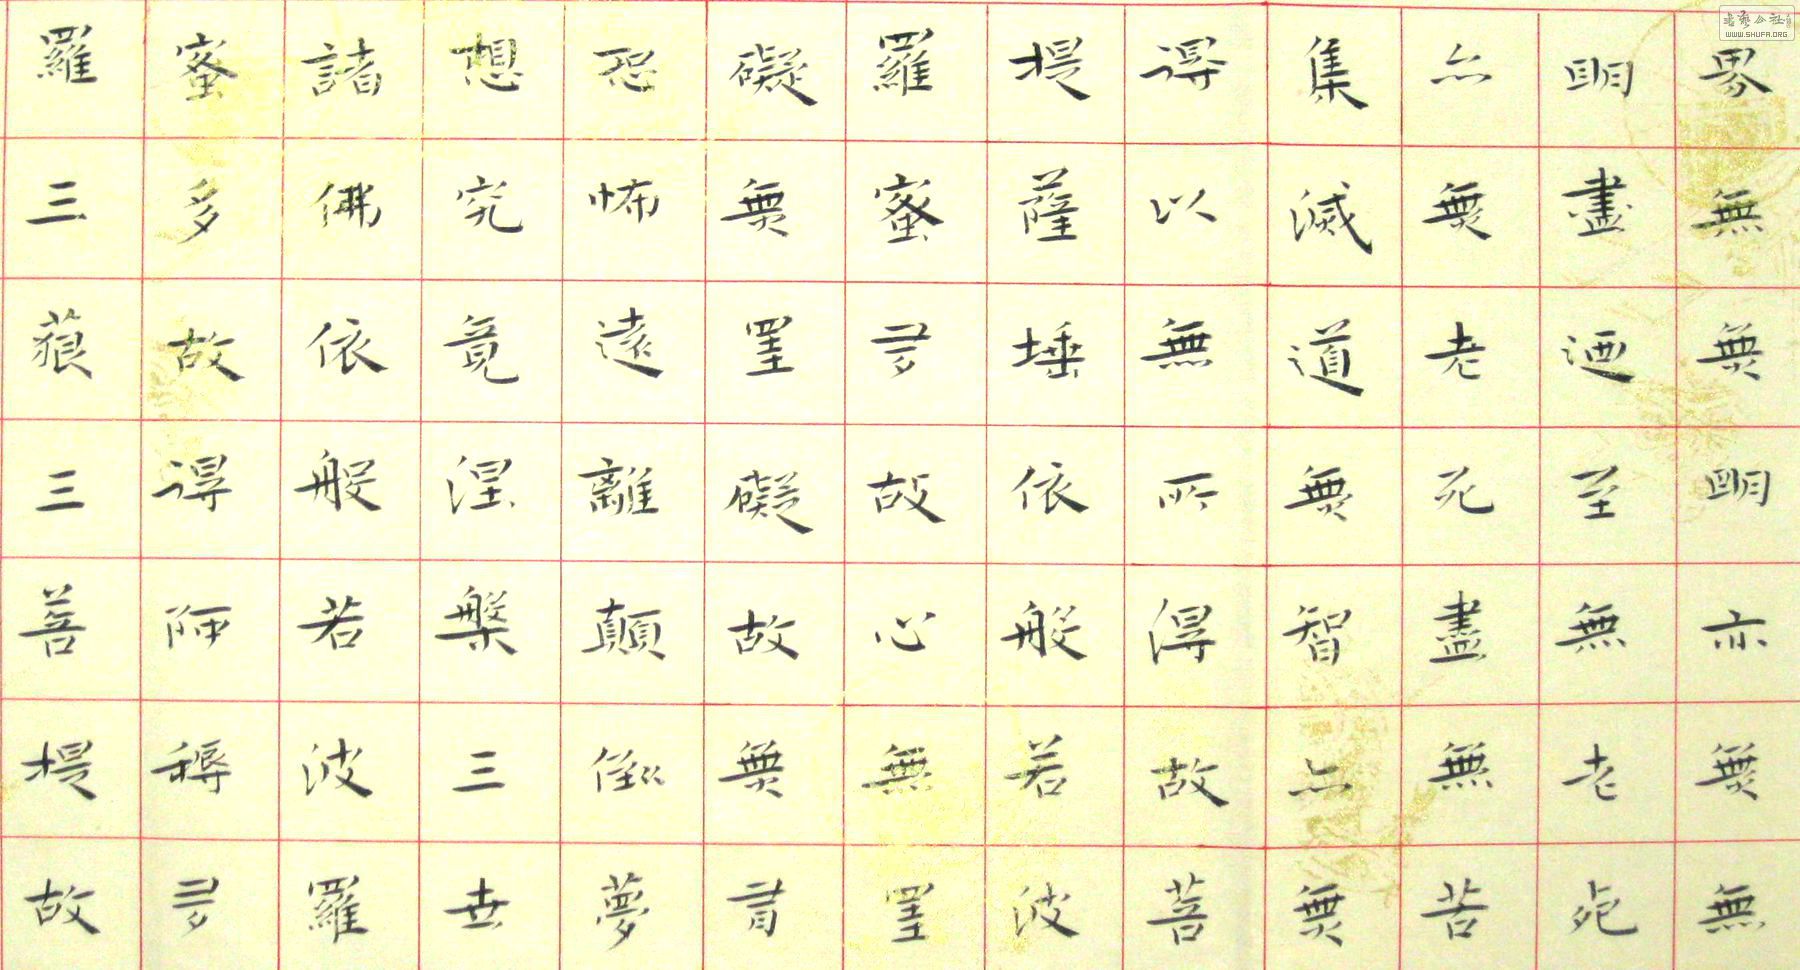 界無無明亦無無
明盡迺至無老死
亦無老死盡無苦
集滅道無智亦無
得以無所得故菩
提薩埵依般若波
羅蜜多故心無罣
礙無罣礙故無有
恐怖遠離顛倒夢
想究竟涅槃三世
諸佛依般若波羅
蜜多故得阿耨多
羅三藐三菩提故
WWW.SHUFA.ORG